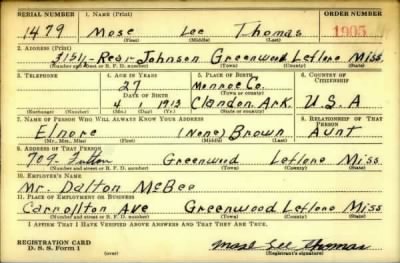 SERIAL NUMBER 1. NAME (Print) ORDER NUMBER
1479 Mose Lee Thomas 1905
(First) (Middle) (Last)
2. ADDRESS (Print)
315½-Rear-Johnson Greenwood Leflore Miss.
(Number and street or R. F. D. number) (Town) (County) (State)
3. TELEPHONE 4. AGE IN YEARS 5. PLACE OF BIRTH 6. COUNTRY OF CITIZENSHIP
27 Monroe Co.
DATE OF BIRTH (Town or county)
4 1913 Clarden, Ark. U.S.A
(Exchange) (Number) (Mo.) (Day) (Yr.) (State or country)
7. NAME OF PERSON WHO WILL ALWAYS KNOW YOUR ADDRESS 8. RELATIONSHIP OF THAT PERSON
Elnore (None) Brown Aunt
(Mr., Mrs., Miss) (First) (Middle) (Last)
9. ADDRESS OF THAT PERSON
709- Fulton Greenwood Leflore Miss
(Number and street or R. F. D. number) (Town) (County) (State)
10. EMPLOYER'S NAME
Mr. Dalton McBee
11. PLACE OF EMPLOYMENT OR BUSINESS
Carrollton Ave Greenwood Leflore Miss
(Number and street or R. F. D. number) (Town) (County) (State)
I AFFIRM THAT I HAVE VERIFIED ABOVE ANSWERS AND THAT THEY ARE TRUE.
REGISTRATION CARD
D. S. S. Form 1 (over) Mose Lee Thomas
(Registrant's signature)